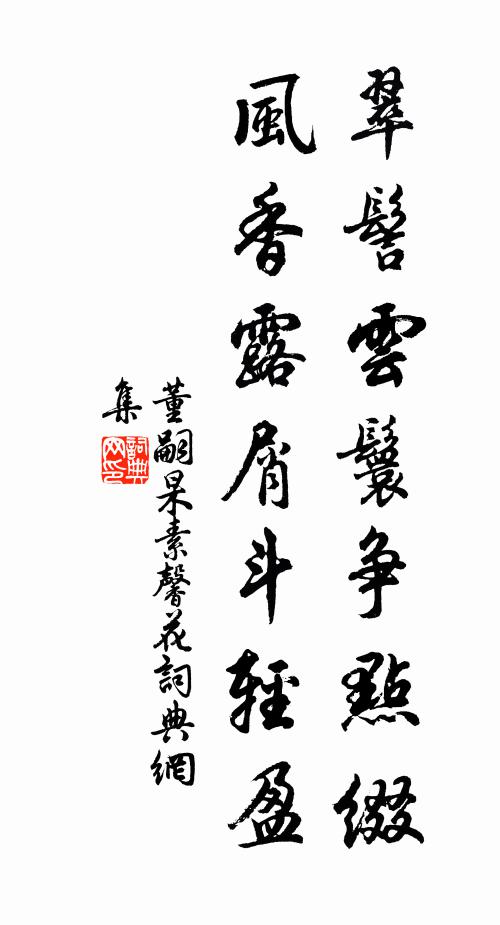 翠髻雲鬟争點綴
風香露屑斗輕盈
董嗣杲素馨花詞典網
集
詞典網印